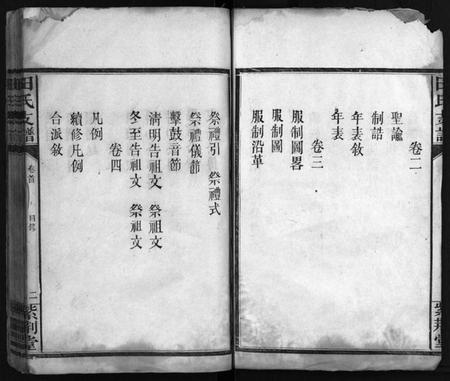 卷二
聖諭
制誥
年表敘
年表
卷三
服制圖畧
服制圖
服制沿革
祭禮引 祭禮式
祭禮儀節
擊鼓音節
清明告祖文 祭祖文
冬至告祖文 祭祖文
卷四
凡例
續修凡例
台派敘
田氏支譜
卷首
目錄
二
紫荆堂
田氏支譜
紫荆堂